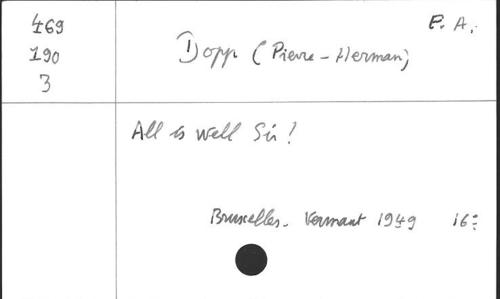 469 P. A.
190 Dopp (Pierre-Herman)
3
All is well Sir!
Bruxelles. Vermaut 1949 16°